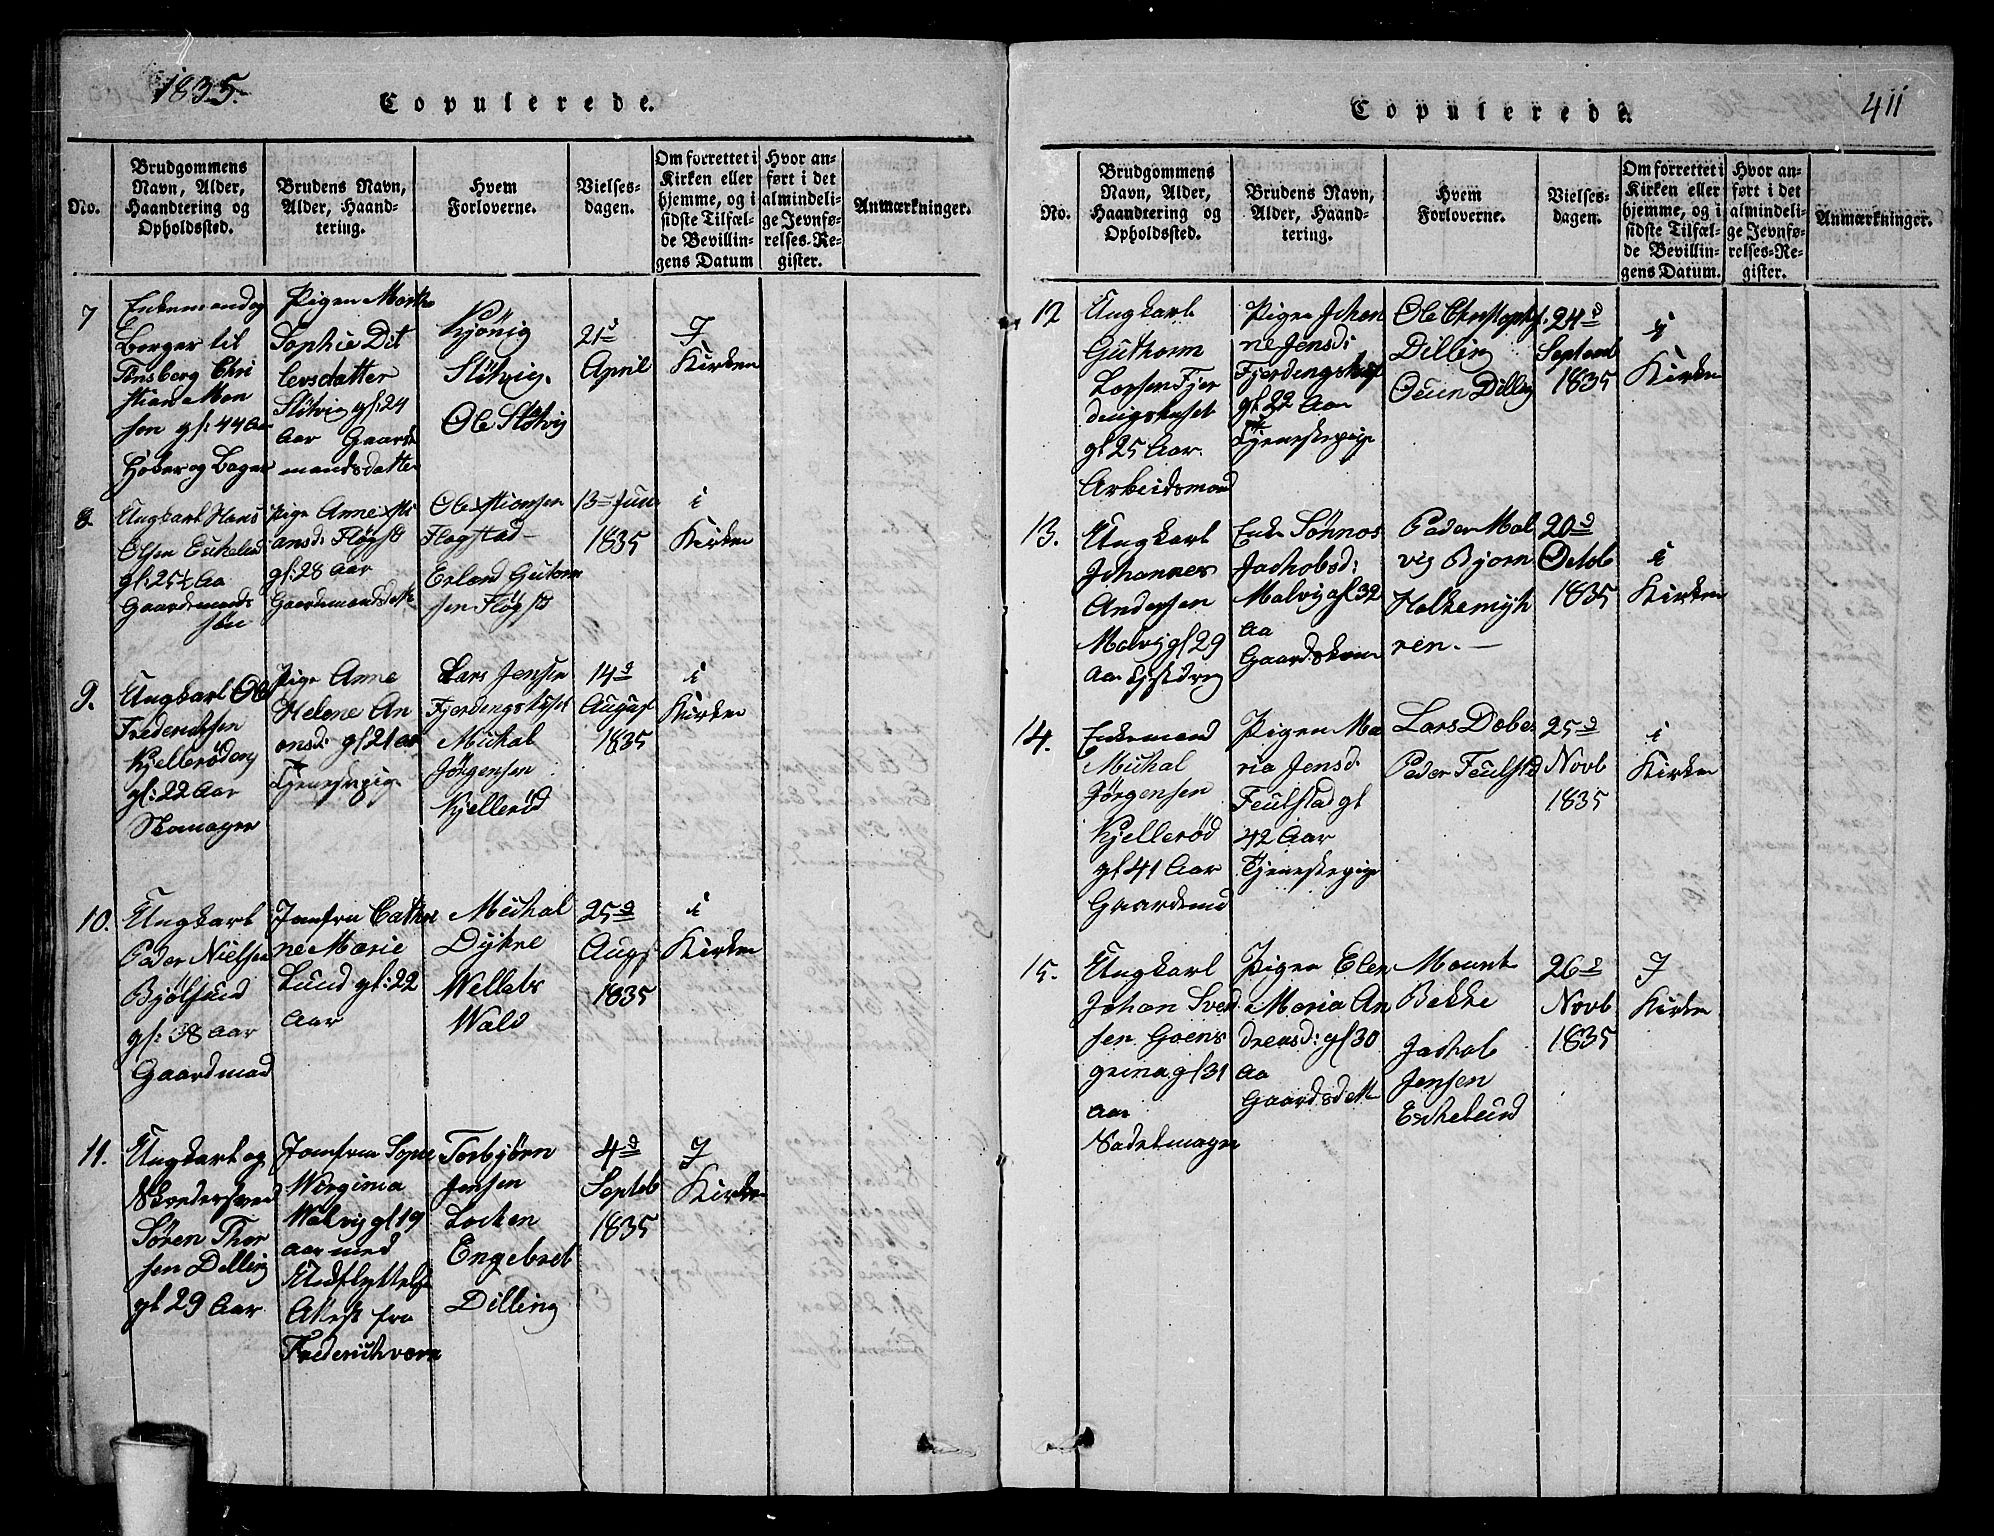 1835.
Copulerede.
No.
Brudgommens
Navn, Alder,
Haandtering og
Opholdssted.
Brudens Navn,
Alder, Haand-
tering.
Hvem
Forloverne.
Vielses-
dagen.
Om forrettet i
Kirken eller
hjemme, og i
sidste Tilfæl-
de Bevillin-
gens Datum
Hvor an-
ført i det
almindeli-
ge Jevnfø-
relses-Re-
gister.
Anmærkninger.
7
Enkemand og
Borger til
Tönsberg Chri
stian Mon
sen gl: 44 Aar
Pigen
Sophie Dit
levsdatter
Slötvig gl: 24
Aar Gaard
mandsdatter
Kjönig
Slötvig.
Ole Slötvig
21d
April
I
Kirken
8.
Ungkarl Hans
Olsen Eskelund
gl: 25½ Aa
Gaardmands
sön
Pige Anne
ansd: Flögst
gl: 28 Aar
Gaardmandsdatt
Ole Stiansen
Flogstad
Erland Gutorm
sen Flögst
13 Juni
1835
i
Kirken
9.
Ungkarl Ole
Fredericksen
Kjellerödeng
gl: 22 Aar
Skomager
Pige Anne
Helene An
onsd: gl 21 aar
Tjenestepige
Lars Jensen
Fjerdengshuset
Michal
Jörgensen
Kjelleröd
14d
August
1835
i
Kirken
10.
Ungkarl
Peder Nielsen
Bjölsund
gl: 38 Aar
Gaardmad
Jomfru Cathri
ne Marie
Lund gl: 22
Aar
Michal
Dyhre
Wellebs
Wald
25d
Augs
1835
i
Kirken
11.
Ungkarl og
Sören Thor
sen Dilling
gl 29 Aar
Jomfru Sopie
Wirginia
Walvig gl 19
aar med
Udflyttelse
Attest fra
Friderichværn
Torbjörn
Jensen
Locken
Engebret
Dilling
4d
Septeb
1835
I
Kirken
Copulerede.
411
No.
Brudgommens
Navn, Alder,
Haandtering og
Opholdssted.
Brudens Navn,
Alder, Haand-
tering.
Hvem
Forloverne.
Vielses-
dagen.
Om forrettet i
Kirken eller
hjemme, og i
sidste Tilfæl-
de Bevillin-
gens Datum.
Hvor an-
ført i det
almindeli-
ge Jevnfø-
relses-Re-
gister.
Anmærkninger.
12
Ungkarl
Guthorm
Larsen Fjer
dingshuset
gl 25 Aar.
Arbeidsmand
Pigen Johan
ne Jensd:
Fjerdengshus
gl 22 Aar
Tjenestepige
Ole Christophs.
Dilling
Ouen Dilling
24d
Septemb
1835
i
Kirken
13.
Ungkarl
Johannes
Andersen
Malvig gl 29
Aar
Enke Sönnos
Jachobsd:
Malvig gl 32
Aa
Gaardskone
Peder Mal
vig Bjorn
Holkemyh
ren.
20d
Octob
1835
i
Kirken
14.
Enkemand
Michal
Jörgensen
Kjelleröd
gl 41 Aar
Gaardmd
Pigen Ma
ria Jensd.
Feulstad gl
42 Aar
Tjenestepige
Lars Dober
Peder Feulstd
25d
Novb
1835
i
Kirken
15.
Ungkarl
Johan Svend
sen Goens
greina gl 31
Aar
Sadelmager
Pigen Elen
Maria An
drensd: gl 30
Aa
Gaardsdatt
Maurit
Bekke
Jachob
Jensen
Eschelund
26d
Novb
1835
I
Kirken